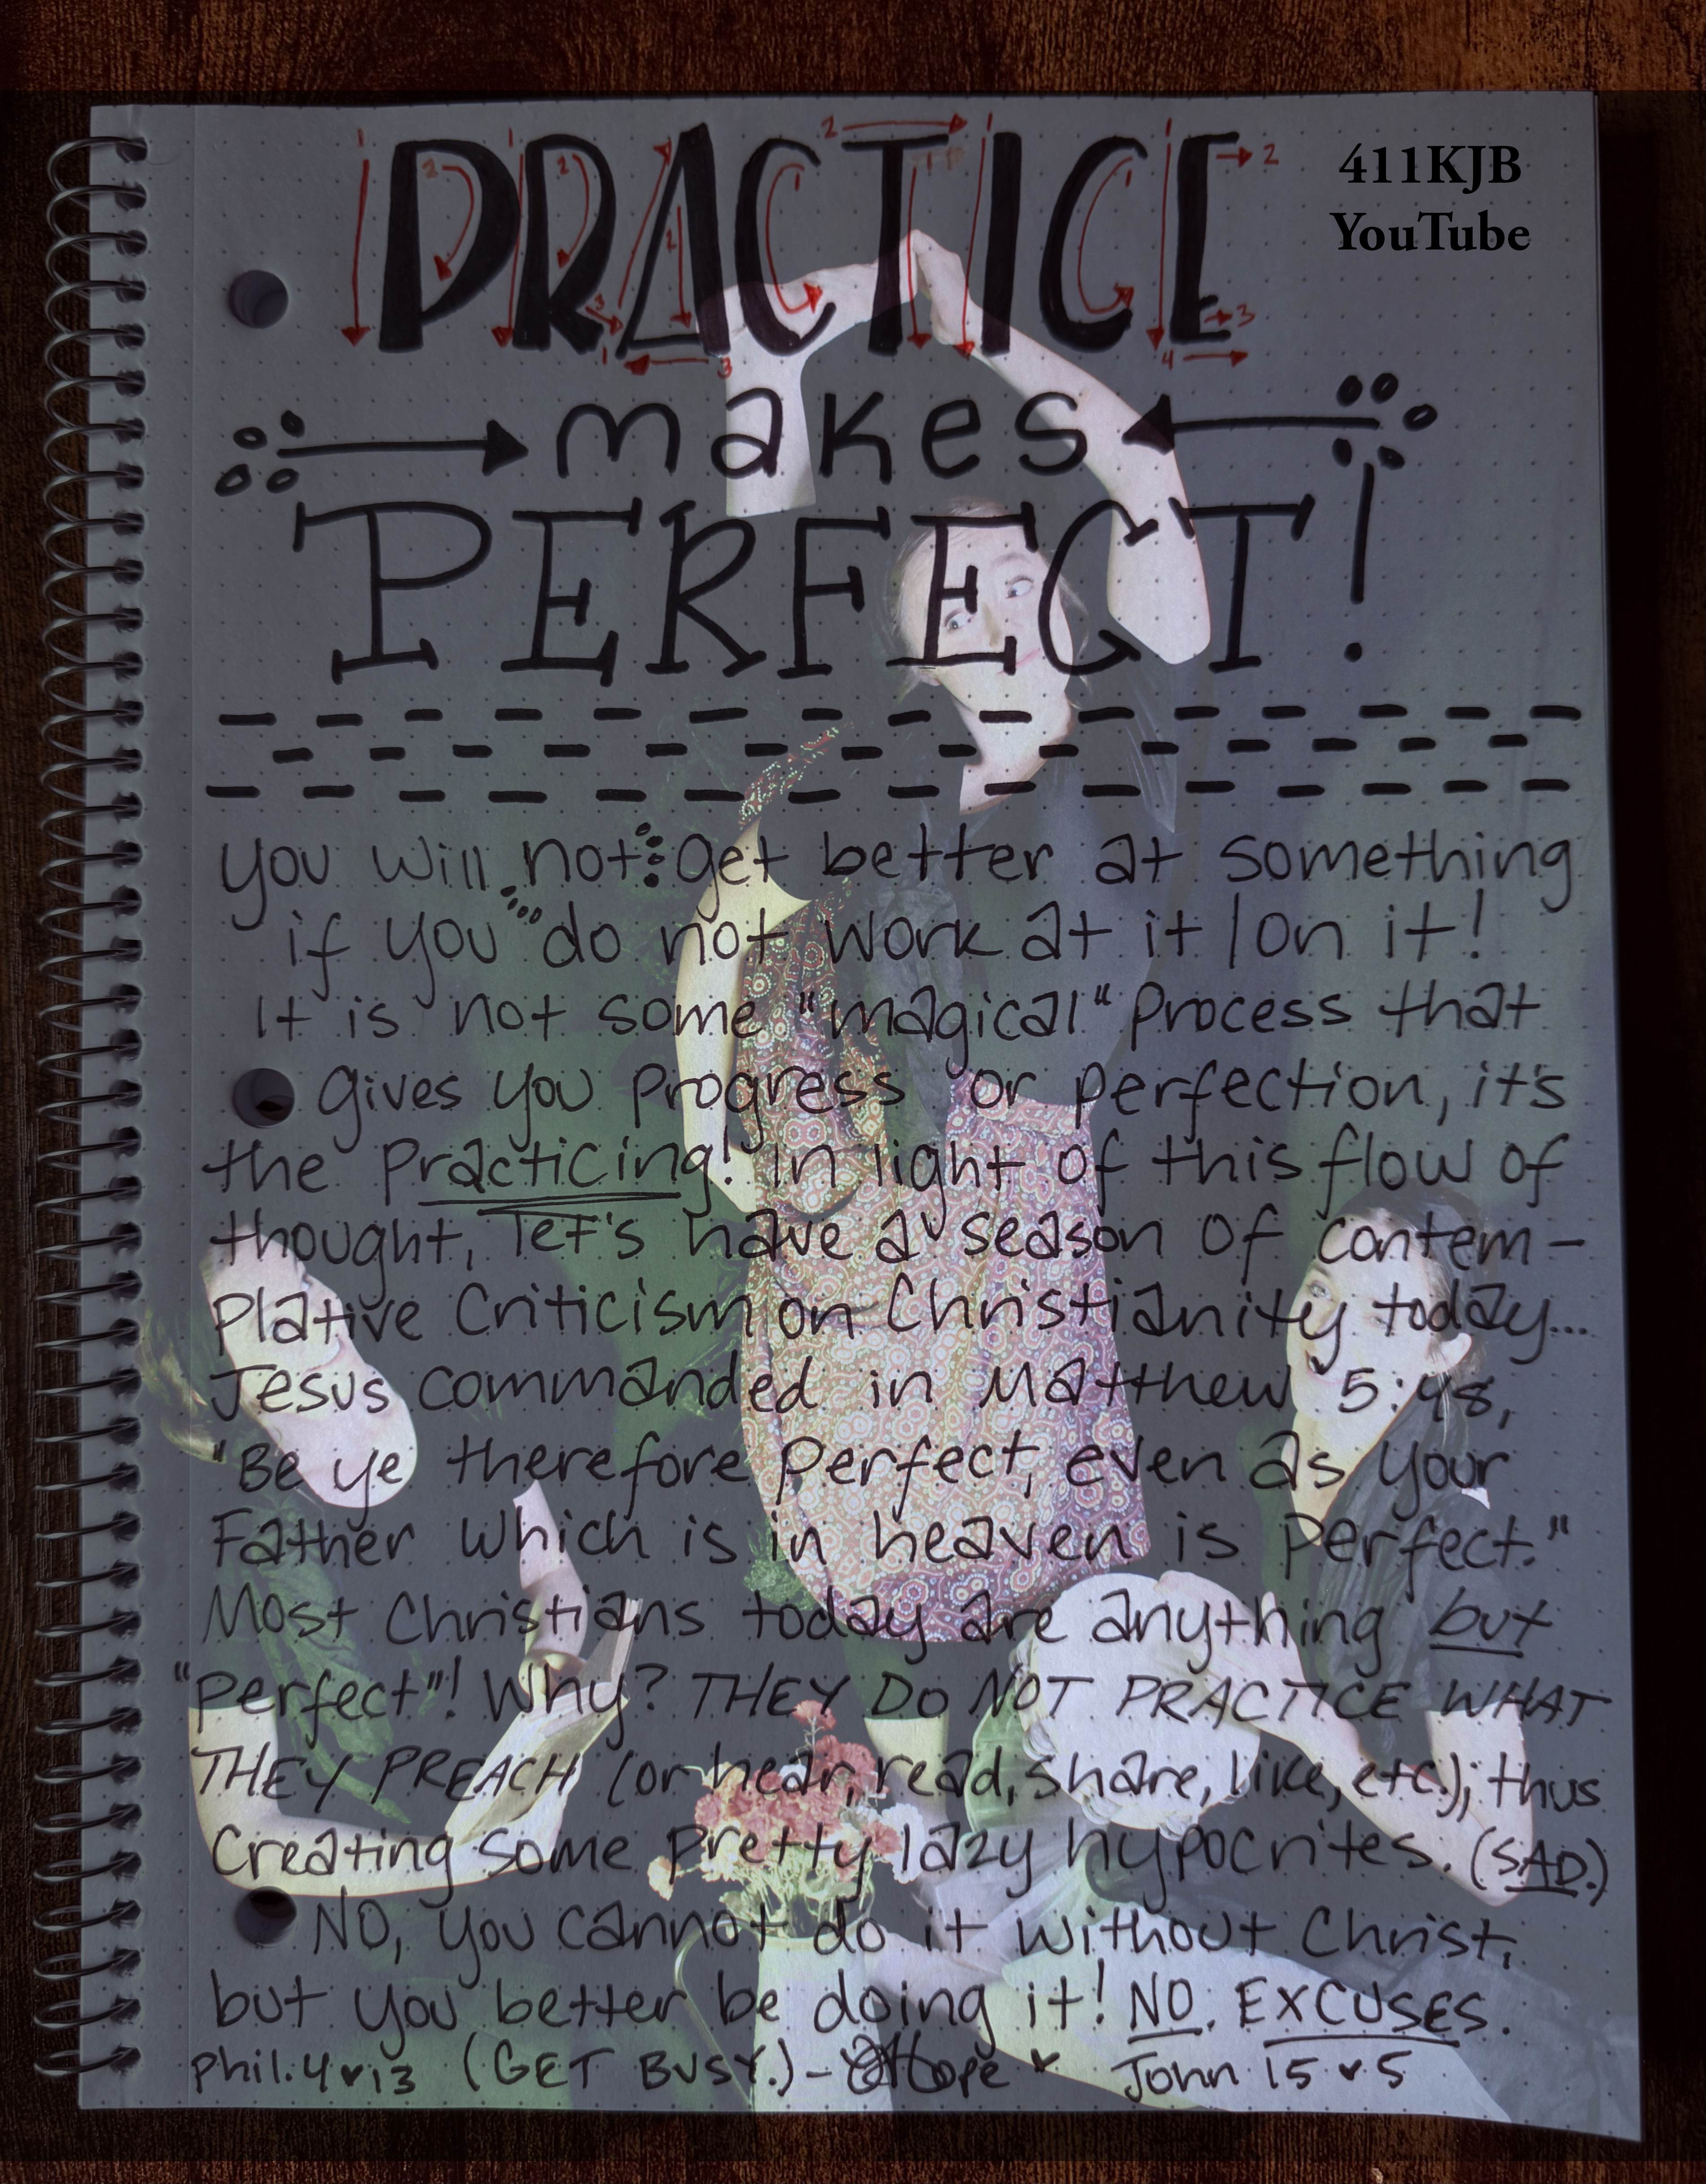 PRACTICE
411KJB
YouTube
makes
PERFECT!
You will not get better at something
if you do not work at it/on it!
It is not some "magical" process that
gives you progress or perfection, it's
the practicing! In light of this flow of
thought, let's have a season of contem-
plative criticism on Christianity today...
Jesus commanded in Matthew 5:48,
"Be ye therefore perfect, even as your
Father which is in heaven is perfect."
Most Christians today are anything but
"perfect"! Why? THEY DO NOT PRACTICE WHAT
THEY PREACH (or hear, read, share, like, etc.); thus
creating some pretty lazy hypocrites. (SAD.)
NO, you cannot do it without Christ,
but you better be doing it! NO. EXCUSES.
Phil. 4♥13 (GET BUSY.) - Hope ♥ John 15♥5